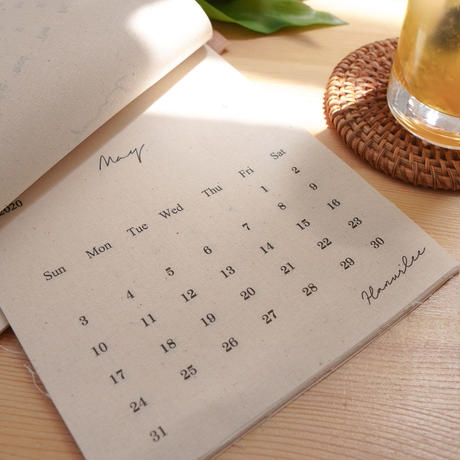 2020
May
Sun Mon Tue Wed Thu Fri Sat
1 2
3 4 5 6 7 8 9
10 11 12 13 14 15 16
17 18 19 20 21 22 23
24 25 26 27 28 29 30
31